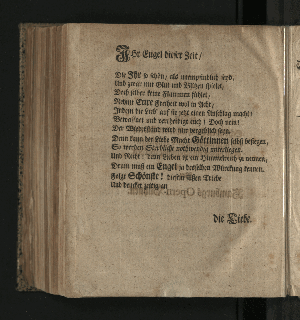 Ihr Engel dieser Zeit/
Die Ihr so schön/ als unempfindlich seyd,
Und zwar mit Blut und Blitzen spielet,
Doch selber keine Flammen fühlet,
Nehmt Eure Freyheit wol in Acht,
Indem die Lieb' auf sie jetzt einen Anschlag macht!
Bewaffnet und vertheidigt euch! Doch nein!
Der Widerstand wird nur vergeblich seyn.
Denn kann der Liebe Macht Göttinnen selbst besiegen,
So werden Sterbliche nothwendig unterliegen.
Und Recht! denn Lieben ist ein Himmelreich zu nennen,
Drum muß ein Engel ja desselben Würckung kennen.
Folgt Schönste! diesem süssen Triebe
Und
die Liebe.